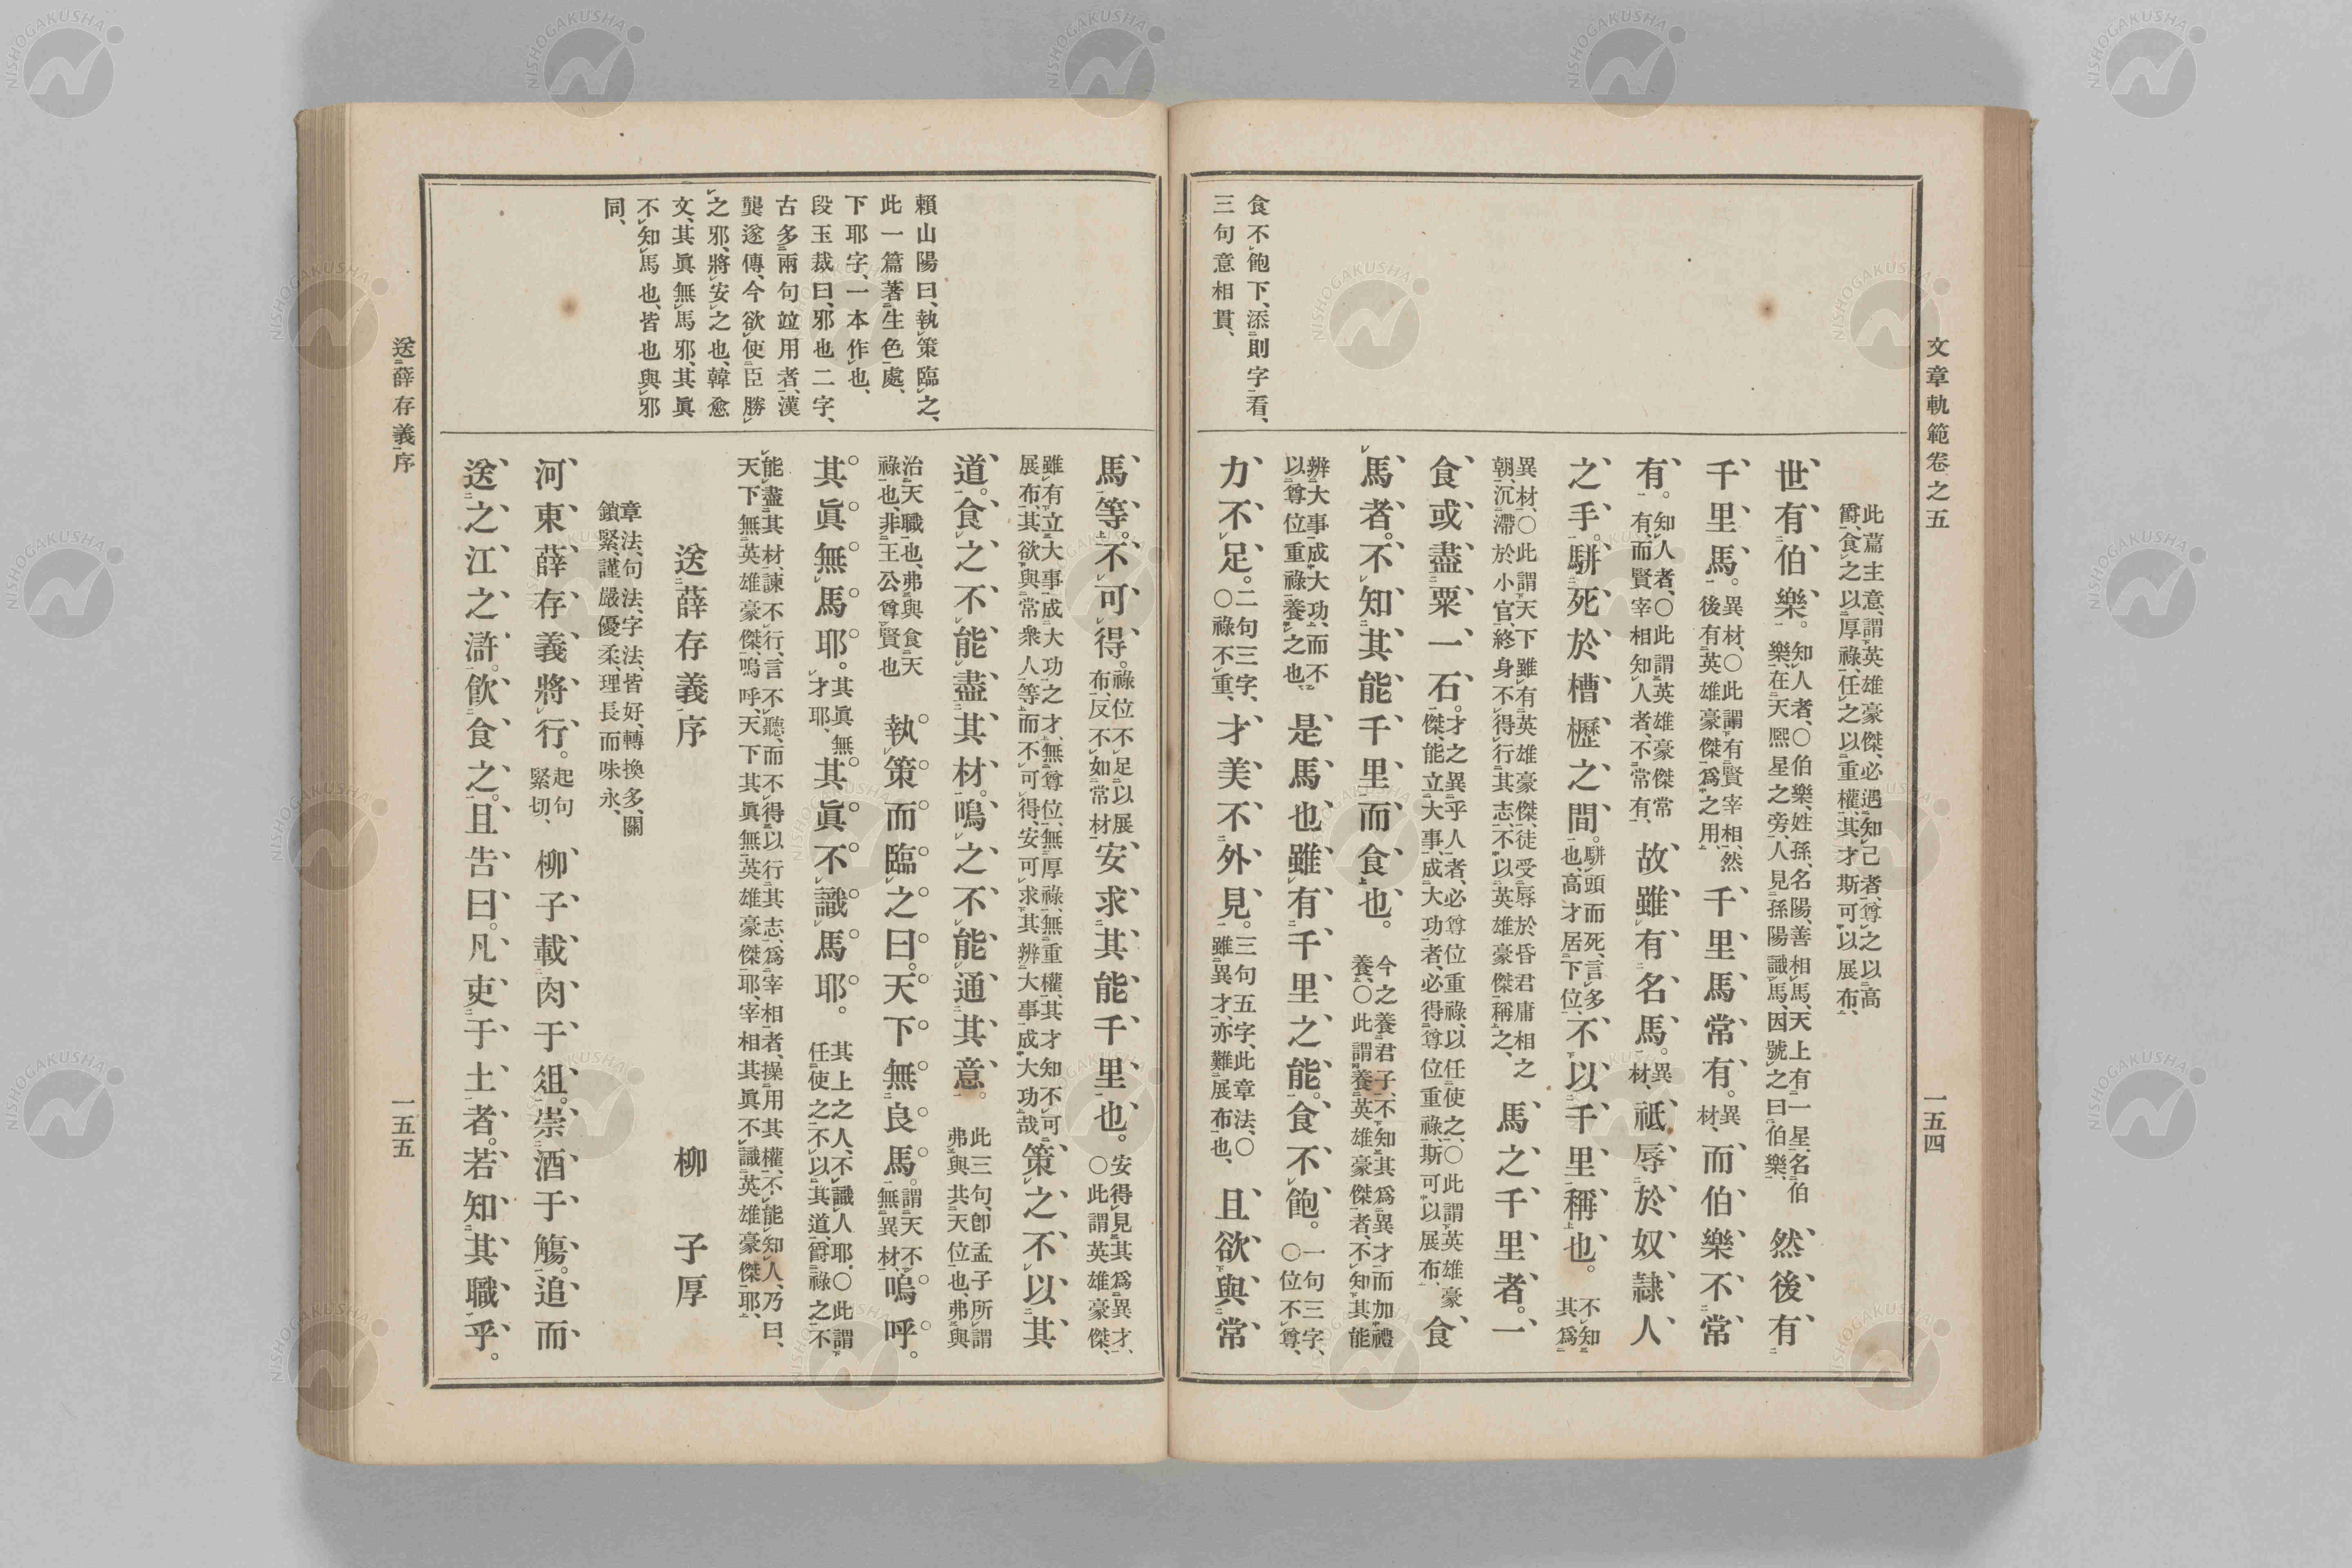 文章軌範卷之五
一五四
食不飽下、添則字看、
三句意相貫、
此篇主意、謂英雄豪傑、必遇知己者、尊之以高爵、食之以厚祿、任之以重權、其才斯可以展布、
世有伯樂。知人者、○伯樂、姓孫、名陽、善相馬、天上有一星、名伯樂、在天熙星之旁、人見孫陽識馬、因號之曰伯樂、然後有
千里馬。異材、○此謂有賢宰相、然後有英雄豪傑爲之用、千里馬常有。異材、而伯樂不常
有。知人者、○此謂英雄豪傑常有、而賢宰相知人者、不常有、故雖有名馬。異材、祗辱於奴隷人
之手。駢死於槽櫪之間。駢頭而死、言多也、高才居下位、不以千里稱也。不知其爲
異材、○此謂天下雖有英雄豪傑、徒受辱於昏君庸相之朝、沉滯於小官、終身不得行其志、不以英雄豪傑稱之、馬之千里者。一
食或盡粟一石。才之異乎人者、必尊位重祿、以任使之、○此謂英雄豪傑、能立大事、成大功者、必得尊位重祿、斯可以展布、食
馬者。不知其能千里而食也。今之養君子、不知其爲異才而加禮養、○此謂養英雄豪傑者、不知其能
辨大事成大功、而不以尊位重祿養之也 是馬也雖有千里之能。食不飽。一句三字、○位不尊、
力不足。二句三字、○祿不重、才美不外見。三句五字、此章法、○雖異才、亦難展布也、且欲與常
賴山陽曰、執策臨之、
此一篇著生色處、
下耶字、一本作也、
段玉裁曰、邪也二字、
古多兩句竝用者、漢
龔遂傳、今欲使臣勝
之邪、將安之也、韓愈
文、其眞無馬邪、其眞
不知馬也、皆也與邪
同、
馬等。不可得。祿位不足以展布、反不如常材、安求其能千里也。安得見其爲異才、○此謂英雄豪傑、
雖有立大事成大功之才、無尊位、無厚祿、無重權、其才知不可展布、其欲與常衆人等而不可得、安可求其辨大事成大功哉 策之不以其
道。食之不能盡其材。鳴之不能通其意。此三句、卽孟子所謂弗與共天位也、弗與
治天職也、弗與食天祿也、非王公尊賢也 執策而臨之曰。天下無良馬。謂天下無異材、嗚呼。
其眞無馬耶。其眞無才耶、其眞不識馬耶。其上之人、不識人耶、○此謂任使之不以其道、爵祿之不
能盡其材、諫不行、言不聽、而不得以行其志、爲宰相者、操用其權、不能知人、乃曰、天下無英雄豪傑、嗚呼、天下其眞無英雄豪傑耶、宰相其眞不識英雄豪傑耶、
送薛存義序 柳子厚
章法、句法、字法、皆好、轉換多、關鎖緊、謹嚴優柔、理長而味永、
河東薛存義將行。起句緊切、柳子載肉于俎。崇酒于觴。追而
送之江之滸。飮食之。且告曰。凡吏于土者。若知其職乎。
送薛存義序
一五五
NISHOGAKUSHA